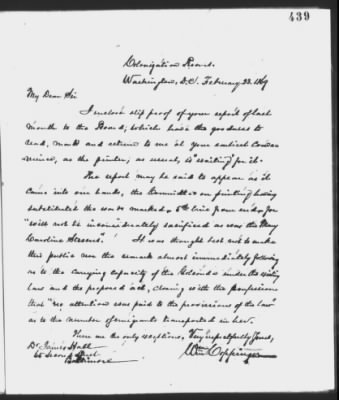 439
Colonization Rooms,
Washington, D.C. February 23. 1869
My Dear Sir
I enclose slip proof of your report of last
month to the Board, which have the goodness to
read, mark and return to me at your earliest conven
ience, as the printer, as usual, is "waiting" for it.
The report may be said to appear as it
came into our hands, the Committee on printing having
substituted the words marked & 5th line from end for
"will not be inconsiderately sacrificed as was the Mary
Caroline Stevens." It was thought best not to make
this public nor the remark almost immediately following
as to the carrying capacity of the Golconda under the existing
law and the proposed act, closing with the
that "no attention was paid to the provisions of the law
as to the number of emigrants transported in her.
These are the only exceptions, Very respectfully Yours,
Dr. James Hall
Wm Coppinger
65 Second Street
Baltimore